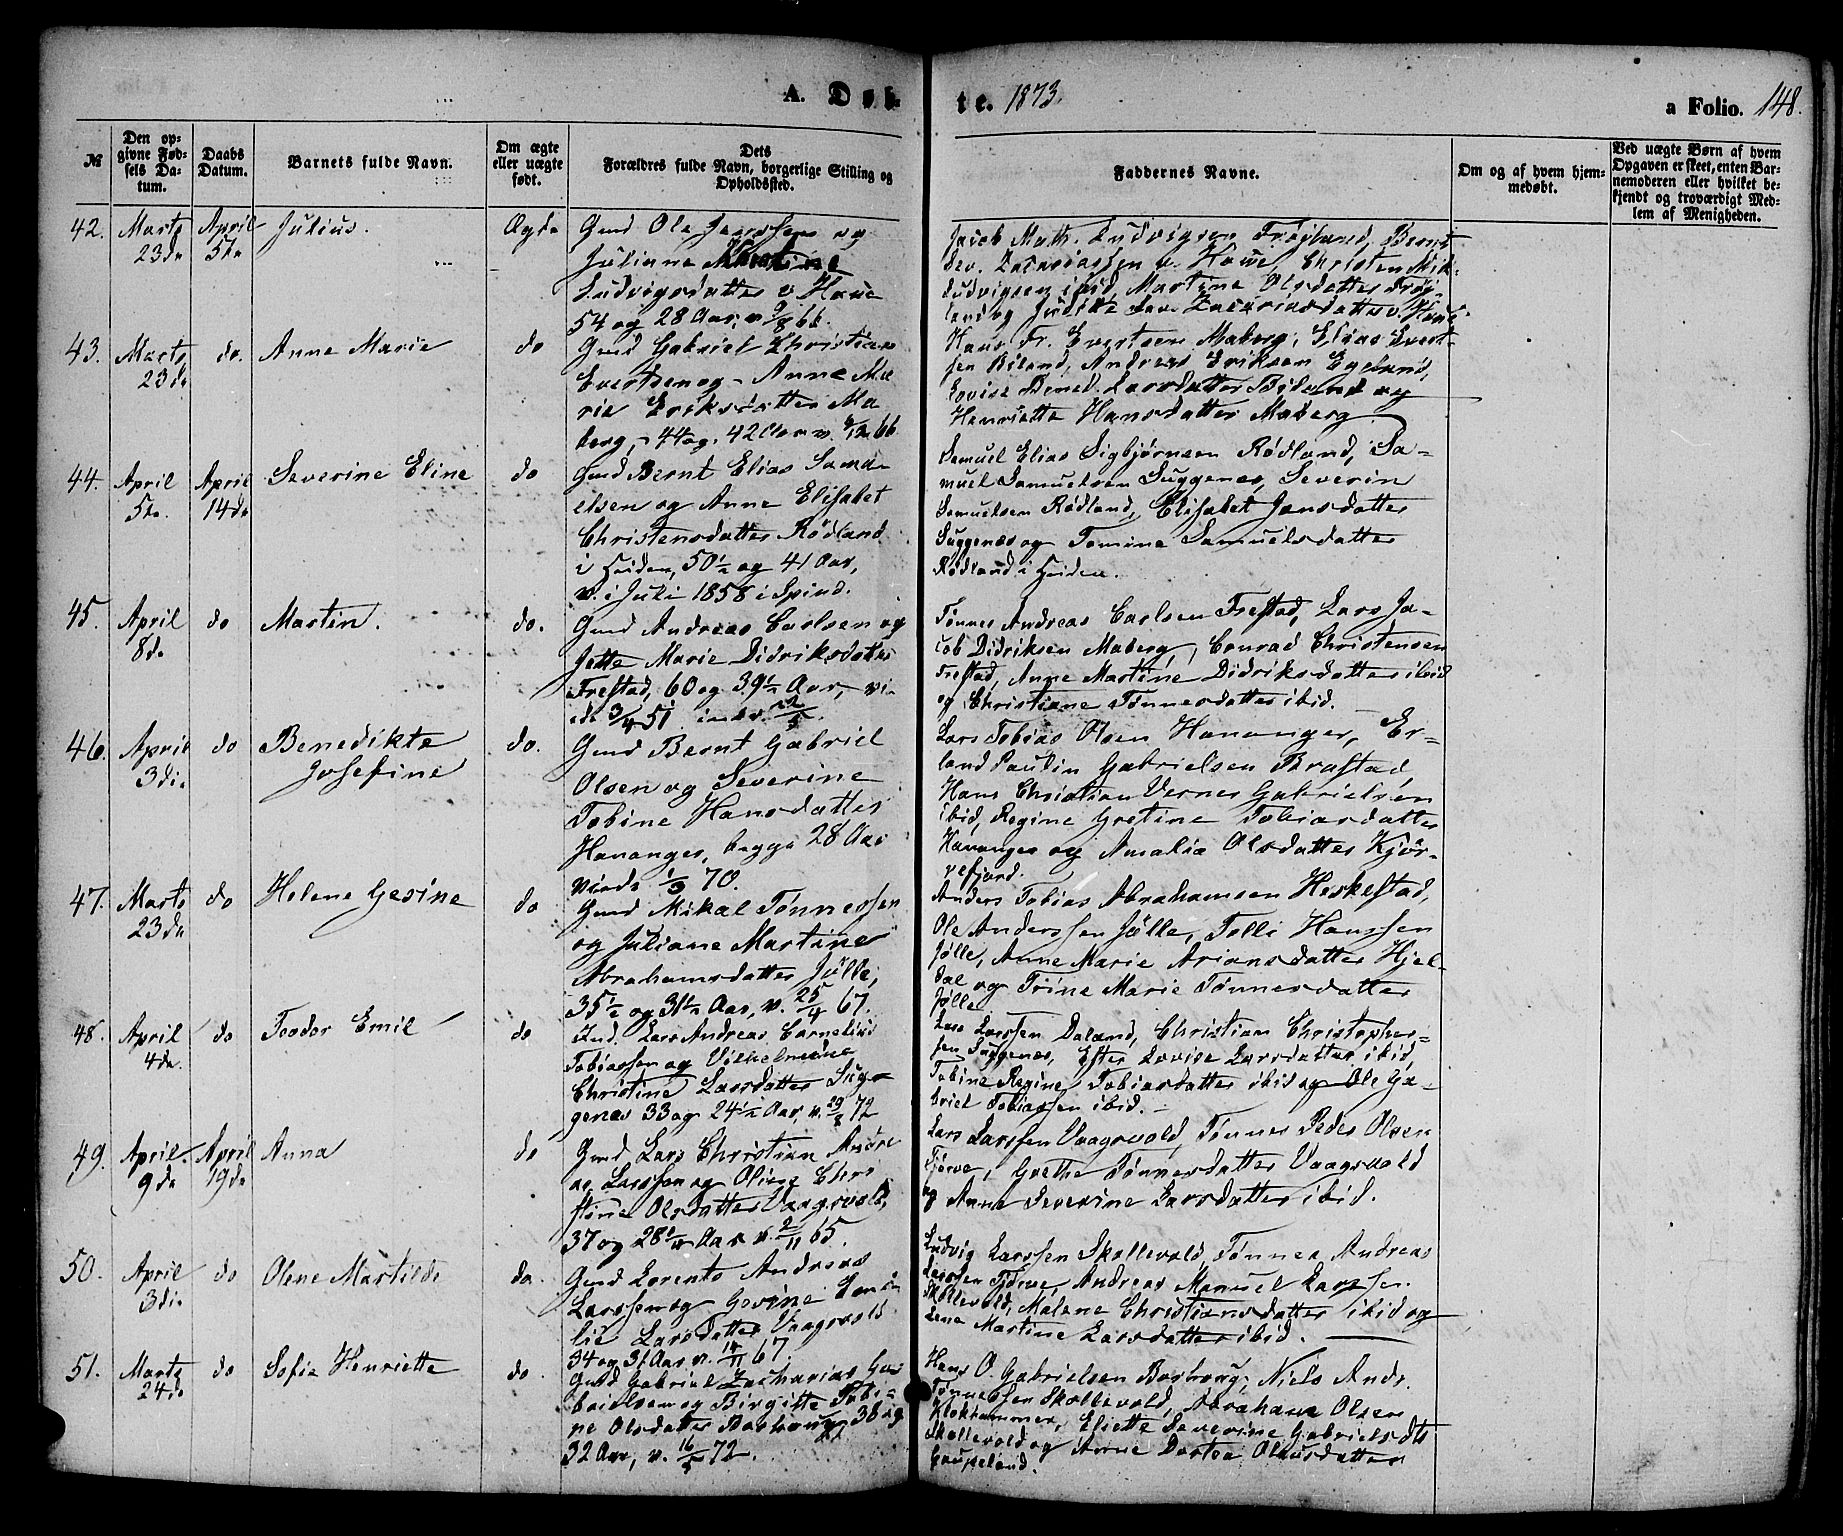 A. Døb-
te. 1873.
a Folio. 148.
№
Den op-
givne Fød-
sels Da-
tum.
Daabs
Datum.
Barnets fulde Navn.
Om ægte
eller uægte
født.
Dets
Forældres fulde Navn, borgerlige Stilling og
Opholdssted.
Faddernes Navne.
Om og af hvem hjem-
medøbt.
Ved uægte Børn af hvem
Opgaven er skeet, enten Bar-
nemoderen eller hvilket be-
kjendt og troværdigt Med-
lem af Menigheden.
42.
Marts
23de
April
5te
Julius.
Ægte
Gmd Ole Jenssen og
Juliane
Ludvigsdatter v Haue
54 og 28 Aar, v. 9/8 66.
Jacob Math. Ludvigsen Frøiland, Bernt
Dev. Zacariassen v. Haue, Christen Mik-
Ludvigsen ibid, Martine Olsdatter Frøi-
land og Julike Dev. Zacariasdatter v. Haue
43.
Marts
23de
do.
Anne Marie
do
Gmd Gabriel Christian
Evertsen og Anne Ma-
rie Eriksdatter Ma
berg, 44 og 42 Aar v. 9/12 66
Hans Fr. Evertsen Maberg, Elias Evert-
sen Biland, Andreas Eriksen Egeland,
Lovise Bened. Larsdatter Biland og
Henriette Hansdatter Maberg
44.
April
5te.
April
14de
Severine Eline
do
Gmd Bernt Elias Samu-
elsen og Anne Elisabet
Christensdatter Rødland
i Heiden, 50½ og 41 Aar,
v. i Juli 1858 i Spind.
Samuel Elias Sigbjørnsen Rødland, Sa-
muel Samuelsen Suggenes, Severin
Samuelsen Rødland, Elisabet Jansdatter
Suggenæs og Tomine Samuelsdatter
Rødland i Heiden.
45.
April
8de
do
Martin.
do.
Gmd Andreas Carlsen og
Jette Marie Didriksdatter
Frestad, 60 og 39½ Aar, vi-
ede 3/4 51
Tønnes Andreas Carlsen Frestad, Lars Ja-
cob Didriksen Maberg, Conrad Christensen
Frestad, Anne Martine Didriksdatter ibid
og Christiane Tønnesdatter ibid.
46.
April
3die
do
Benedikte
Josefine
do.
Gmd Bernt Gabriel
Olsen og Severine
Tobine Hansdatter
Hananger, begge 28 Aar
viede 1/3 70.
Lars Tobias Olsen Hananger, Er-
land Paulin Gabrielsen Brastad,
Hans Christian Vernes Gabrielsen
ibid, Regine Gretine Tobiasdatter
Hananger og Amalia Olsdatter Kjør-
refjord.
47.
Marts
23de
do
Helene Gesine
do
Gmd Mikal Tønnessen
og Juliane Martine
Abrahamsdatter Jølle,
35½ og 31½ Aar, v. 25/4 67.
Anders Tobias Abrahamsen Heskestad,
Ole Anderssen Jølle, Tolli Hanssen
Jølle, Anne Marie Ariansdatter Hjel-
dal og Trine Marie Tønnesdatter
Jølle
48.
April
4de.
do
Teodor Emil
do
Ind. Lars Andreas Cornelius
Tobiassen og Vilhelmine
Christine Larsdatter Sug-
genæs 33 og 24½ Aar, v. 29/8 72
Lars Larssen Daland, Christian Christopher-
sen Suggenæs, Ester Lovise Larsdatter ibid,
Tobine Regine Tobiasdatter ibid og Ole Ga-
briel Tobiassen ibid.
49.
April.
9de
April
19de
Anna
do
Gmd Lars Christian Andre
as Larssen og Oline Chri
stine Olsdatter Vaagsvold,
37 og 28½ Aar v. 2/11 65.
Lars Larssen Vaagsvold, Tønnes Peder Olsen
Tjørve, Grethe Tønnesdatter Vaagsvold
og Anne Severine Larsdatter ibid.
50.
April
3die
do
Olene Martilde
do.
Gmd Lorents Andreas
Larssen og Gevine
lie Larsdatter Vaagsvold
34 og 31 Aar v. 14/11 67.
Ludvig Larssen Skollevold, Tønnes Andreas
Larssen Tjørve, Andreas Manuel Larssen
Skollevold, Malene Christiansdatter ibid og
Lena Martine Larsdatter ibid.
51.
Marts
24de
do
Sofie Henriette
do.
Gmd Gabriel Zacharias Ga-
brielsen og Birgitte Tobi-
ne Olsdatter Borhoug 38 og
32 Aar, v. 16/5 72.
Hans O. Gabrielsen Borhoug, Niels Andr.
Tønnessen Skollevold, Abraham Olsen
Klokhammer, Eliette Severine Gabrielsdtr
Skollevold og Anne Dortea Olausdatter
Gaupeland.